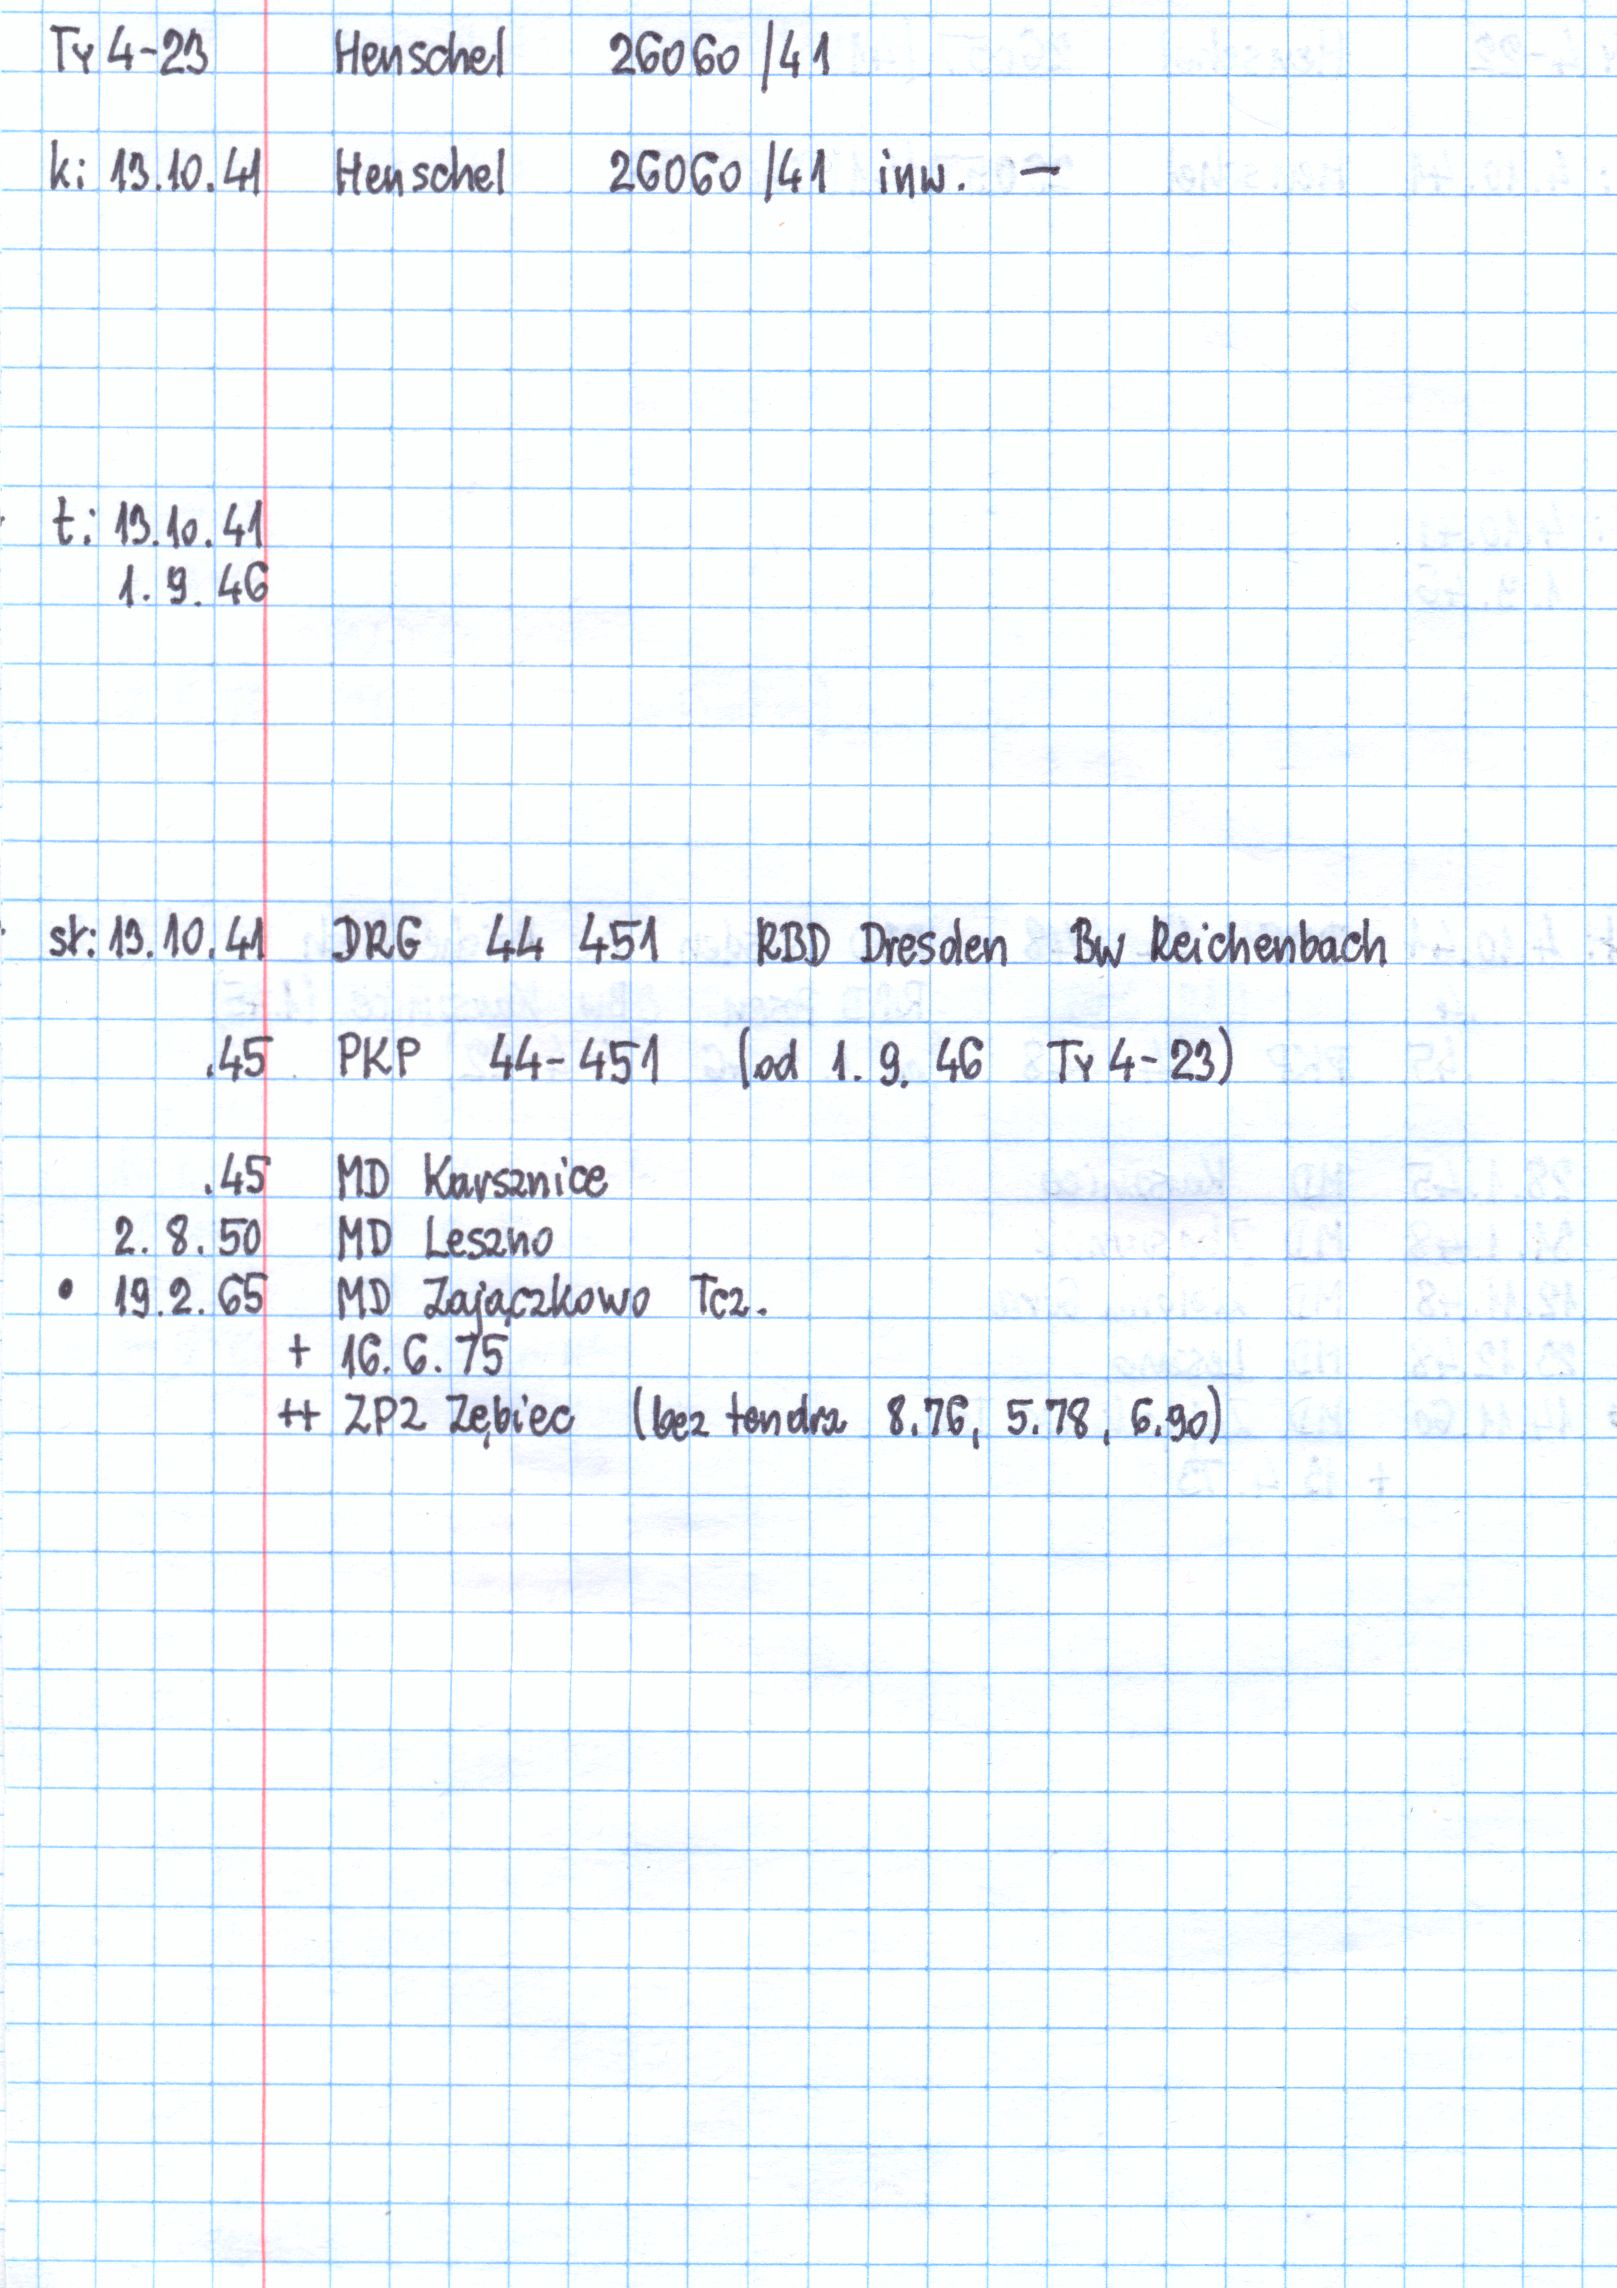 Ty 4-23 Henschel 26060/41
k: 13.10.41 Henschel 26060/41 inw. –
t: 13.10.41
1. 9. 46
st: 13.10.41 DRG 44 451 RBD Dresden Bw Reichenbach
.45 PKP 44-451 (od 1. 9. 46 Ty 4-23)
.45 MD Karsznice
2. 8. 50 MD Leszno
• 19.2.65 MD Zajączkowo Tcz.
+ 16.6.75
++ ZP2 Zębiec (bez tendra 8.76, 5.78, 6.90)